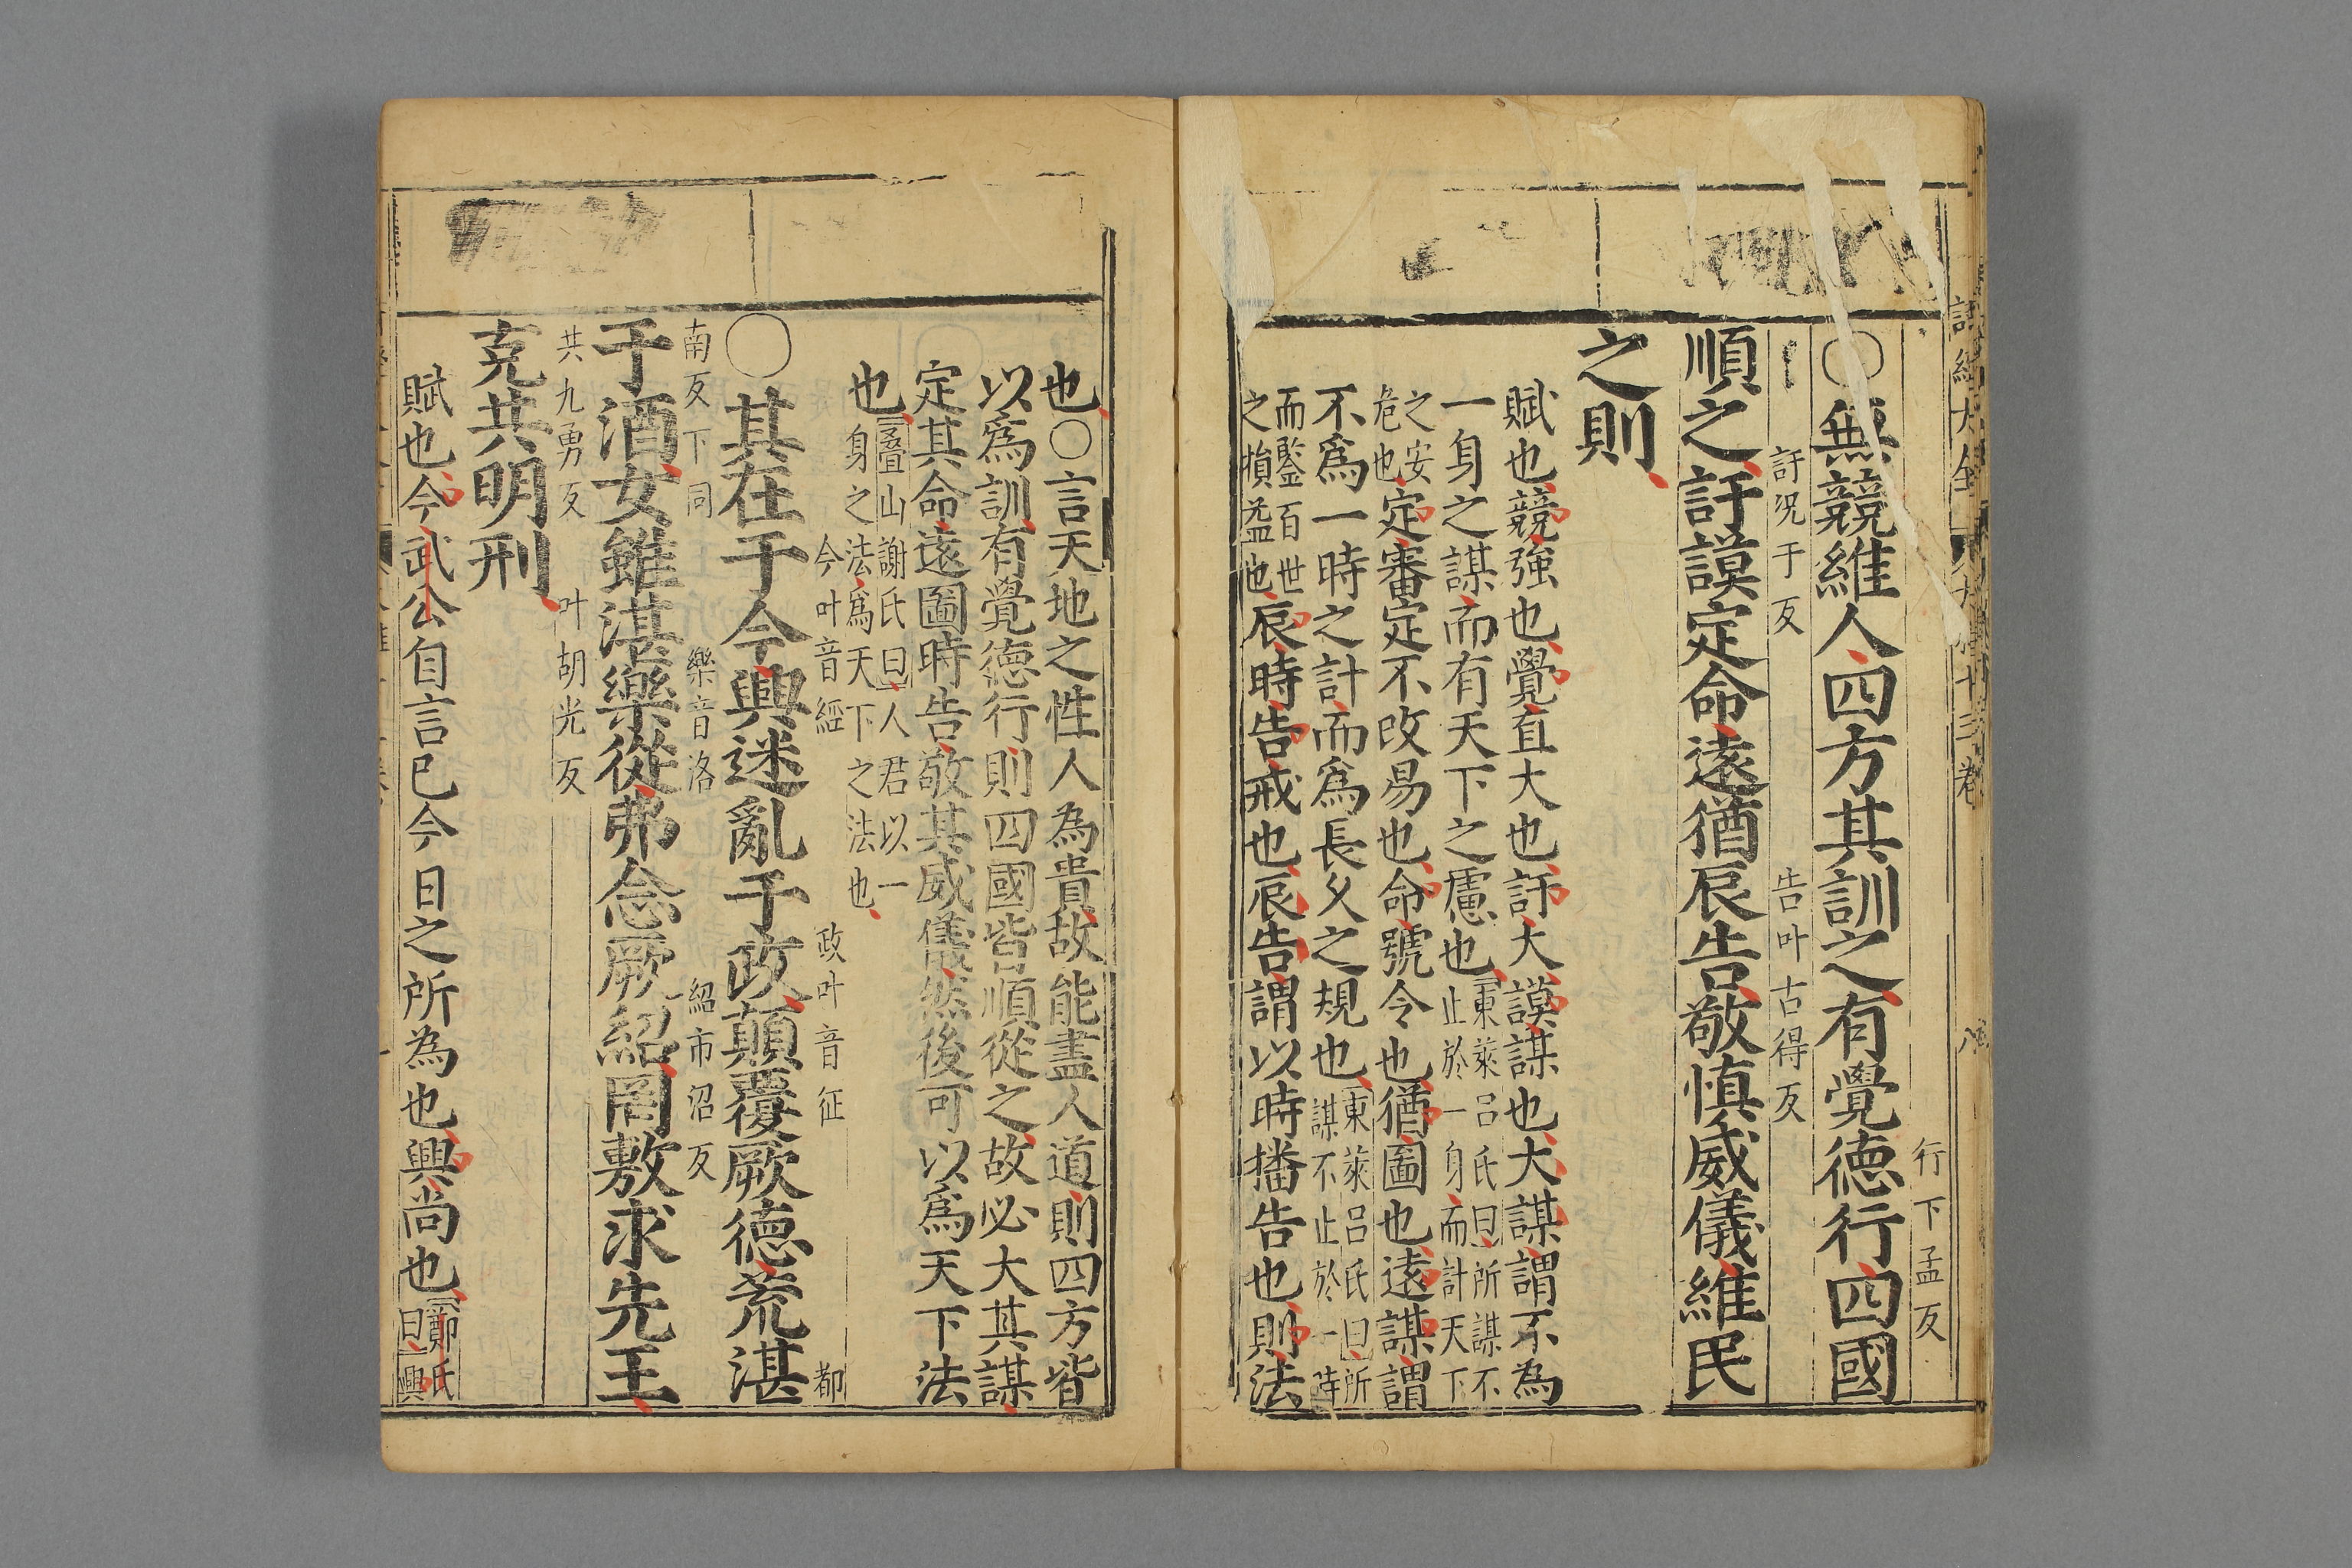 詩經大全 大雅十三卷 八
行下孟反
〇無競維人四方其訓之有覺德行四國
訏况于反 告叶古得反
順之訏謨定命遠猶辰告敬慎威儀維民
之則
賦也競強也覺直大也訏大謨謀也大謀謂不為
一身之謀而有天下之慮也
東萊呂氏曰所謀不
止於一身而計天下
之安
危也
定審定不改易也命號令也猶圖也遠謀謂
不爲一時之計而爲長久之規也
東萊呂氏曰所
謀不止於一時
而鑒百世
之損益也
辰時告戒也辰告謂以時播告也則法
也〇言天地之性人為貴故能盡人道則四方皆
以爲訓有覺德行則四國皆順從之故必大其謀
定其命遠圖時告敬其威儀然後可以爲天下法
也
疊山謝氏曰人君以一
身之法爲天下之法也
今叶音經 政叶音征 都
〇其在于今興迷亂于政顛覆厥德荒湛
南反下同 樂音洛 紹市沼反
于酒女雖湛樂從弗念厥紹罔敷求先王
共九勇反 叶胡光反
克共明刑
賦也今武公自言已今日之所為也興尚也
鄭氏
曰興